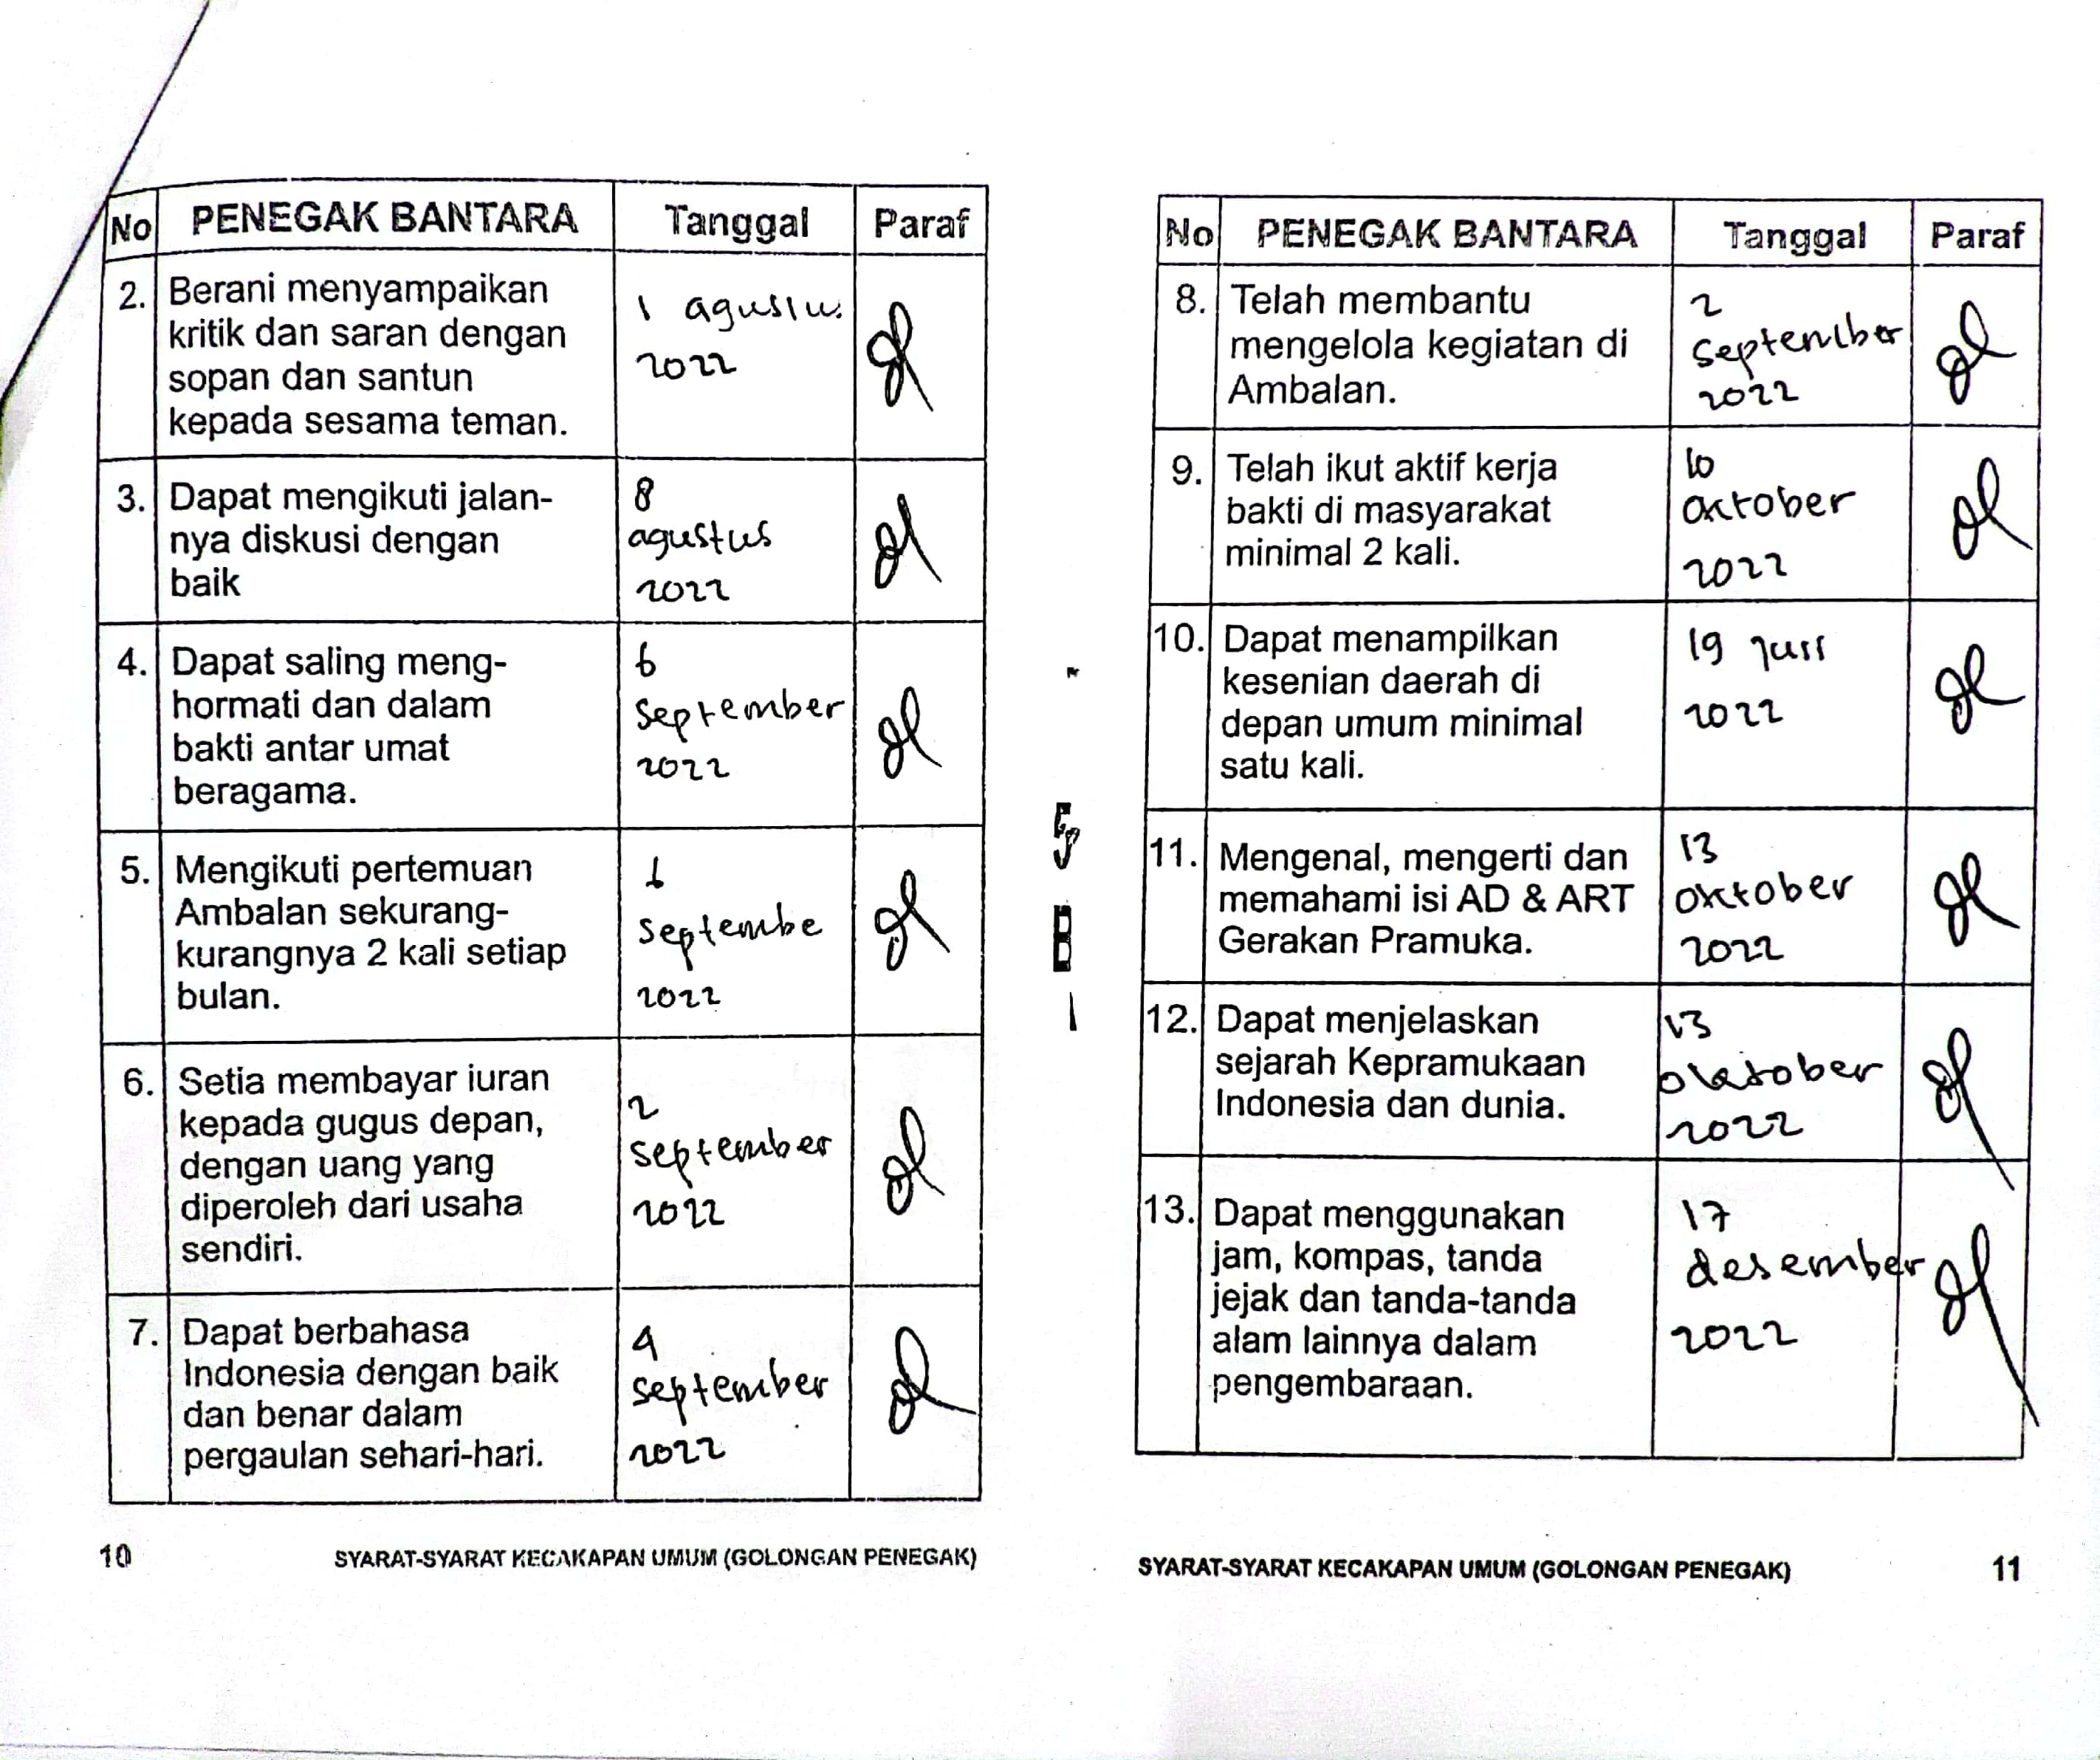 No PENEGAK BANTARA Tanggal Paraf
2. Berani menyampaikan
kritik dan saran dengan
sopan dan santun
kepada sesama teman.
1 agustus
2022
3. Dapat mengikuti jalan-
nya diskusi dengan
baik
8
agustus
2022
4. Dapat saling meng-
hormati dan dalam
bakti antar umat
beragama.
6
september
2022
5. Mengikuti pertemuan
Ambalan sekurang-
kurangnya 2 kali setiap
bulan.
1
septembe
2022
6. Setia membayar iuran
kepada gugus depan,
dengan uang yang
diperoleh dari usaha
sendiri.
2
september
2022
7. Dapat berbahasa
Indonesia dengan baik
dan benar dalam
pergaulan sehari-hari.
4
september
2022
10 SYARAT-SYARAT KECAKAPAN UMUM (GOLONGAN PENEGAK)
No PENEGAK BANTARA Tanggal Paraf
8. Telah membantu
mengelola kegiatan di
Ambalan.
2
september
2022
9. Telah ikut aktif kerja
bakti di masyarakat
minimal 2 kali.
10
oktober
2022
10. Dapat menampilkan
kesenian daerah di
depan umum minimal
satu kali.
19
2022
11. Mengenal, mengerti dan
memahami isi AD & ART
Gerakan Pramuka.
13
oktober
2022
12. Dapat menjelaskan
sejarah Kepramukaan
Indonesia dan dunia.
13
oktober
2022
13. Dapat menggunakan
jam, kompas, tanda
jejak dan tanda-tanda
alam lainnya dalam
pengembaraan.
17
desember
2022
SYARAT-SYARAT KECAKAPAN UMUM (GOLONGAN PENEGAK) 11